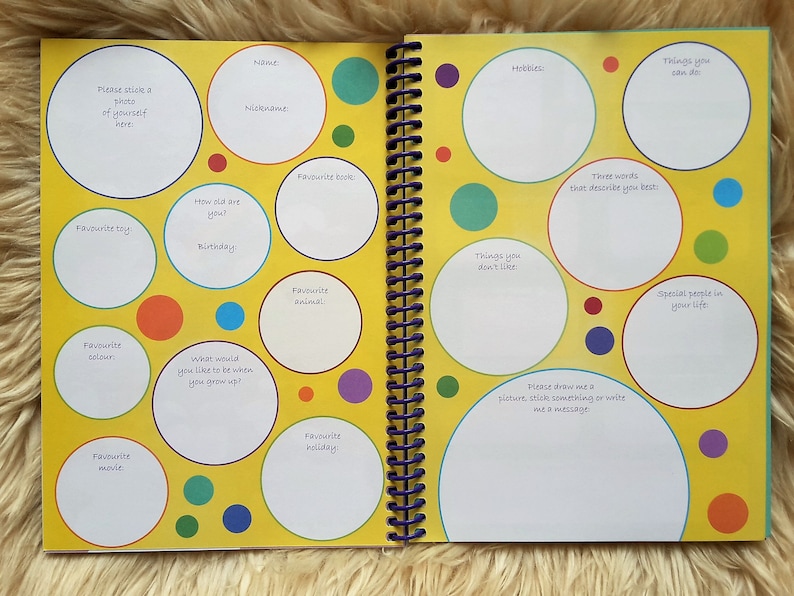 Please stick a
photo
of yourself
here:
Name:
Nickname:
Favourite book:
How old are
you?
Birthday:
Favourite toy:
Favourite
animal:
Favourite
colour:
What would
you like to be when
you grow up?
Favourite
movie:
Favourite
holiday:
Hobbies:
Things you
can do:
Three words
that describe you best:
Things you
don't like:
Special people in
your life:
Please draw me a
picture, stick something or write
me a message: